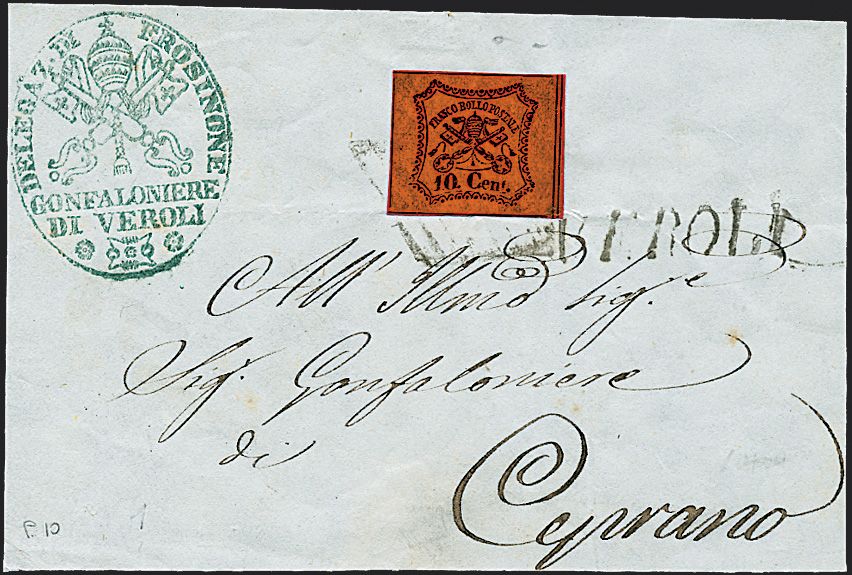 DELEGAZ. DI FROSINONE
GONFALONIERE
DI VEROLI
FRANCO BOLLO POSTALE
10. Cent.
VEROLI
All' Illmo Sig.re
Sig. Gonfaloniere
di
Ceprano
P. 10